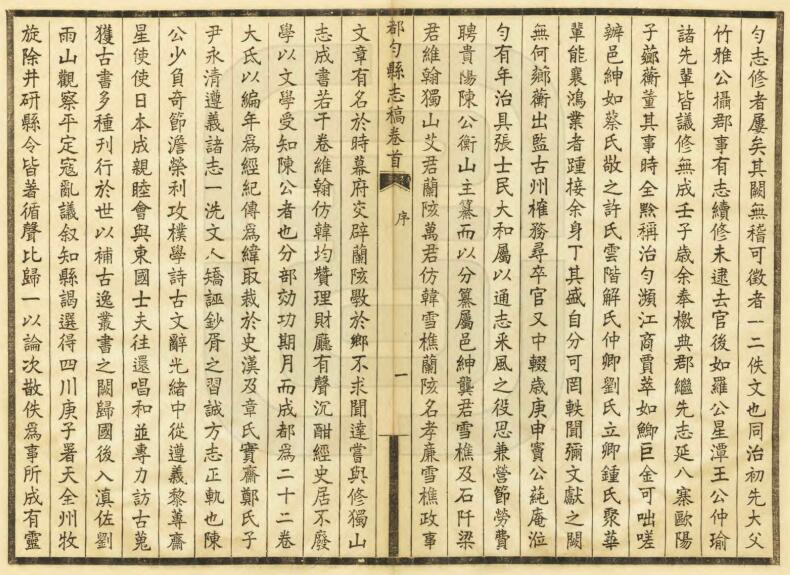 勻志修者屢矣其闕無稽可徵者一二佚文也同治初先大父
竹雅公攝郡事有志續修未逮去官後如羅公星潭王公仲瑜
諸先輩皆議修無成壬子歲余奉檄典郡繼先志延八寨歐陽
子薌蘅董其事時全黔稱治勻瀕江商賈萃如鯽巨金可咄嗟
辦邑紳如蔡氏敬之許氏雲階解氏仲卿劉氏立卿鍾氏聚華
輩能襄鴻業者踵接余身丁其盛自分可罔軼聞彌文獻之闕
無何薌蘅出監古州榷務尋卒官又中輟歲庚申竇公蒓庵涖
勻有年治具張士民大和屬以通志采風之役思兼營節勞費
聘貴陽陳公衡山主纂而以分纂屬邑紳龔君雪樵及石阡梁
君維翰獨山艾君蘭陔萬君仿韓雪樵蘭陔名孝廉雪樵政事
都勻縣志稿卷首
序
一
文章有名於時幕府交辟蘭陔斆於鄉不求聞達嘗與修獨山
志成書若干卷維翰仿韓均贊理財廳有聲沉酣經史居不廢
學以文學受知陳公者也分部効功期月而成都爲二十二卷
大氐以編年爲經紀傳爲緯取裁於史漢及章氏實齋鄭氏子
尹永清遵義諸志一洗文人矯誣鈔胥之習誠方志正軌也陳
公少負奇節澹榮利攻樸學詩古文辭光緒中從遵義黎蒓齋
星使使日本成親睦會與東國士夫往還唱和並專力訪古蒐
獲古書多種刊行於世以補古逸叢書之闕歸國後入滇佐劉
雨山觀察平定寇亂議叙知縣謁選得四川庚子署天全州牧
旋除井研縣令皆著循聲比歸一以論次散佚爲事所成有靈